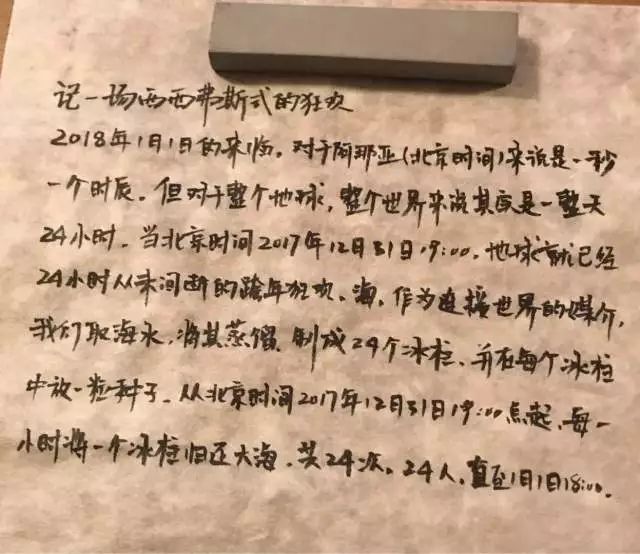 记一场西西弗斯式的狂欢
2018年1月1日的来临，对于阿那亚(北京时间)来说是一秒
一个时辰。但对于整个地球，整个世界来说其实是一整天
24小时。当北京时间2017年12月31日19:00，地球就已经
24小时从未间断的跨年狂欢。海，作为连接世界的媒介，
我们取海水，将其蒸馏，制成24个冰柱，并在每个冰柱
中放一粒种子。从北京时间2017年12月31日19:00点起，每一
小时将一个冰柱归还大海，共24次，24人，直至1月1日18:00。